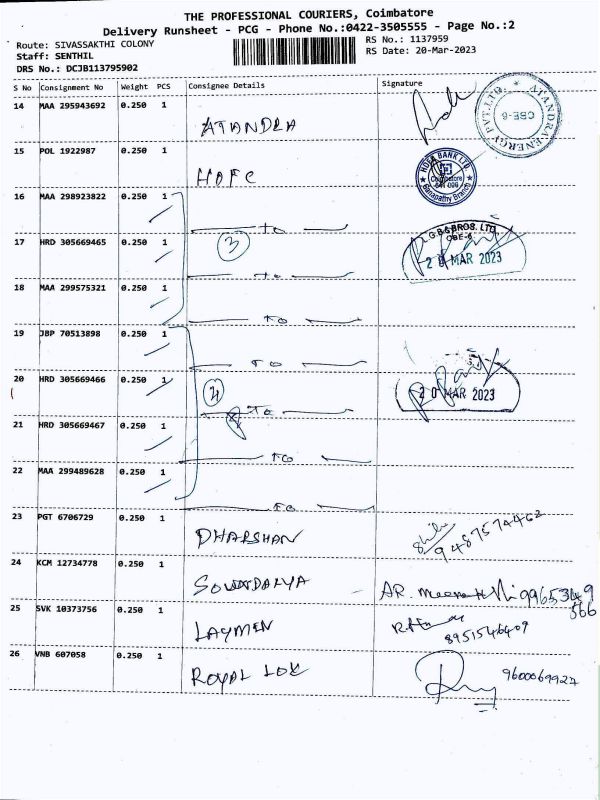 THE PROFESSIONAL COURIERS, Coimbatore
Delivery Runsheet - PCG - Phone No.:0422-3505555 - Page No.:2
Route: SIVASSAKTHI COLONY RS No.: 1137959
Staff: SENTHIL RS Date: 20-Mar-2023
DRS No.: DCJB113795902
S No Consignment No Weight PCS Consignee Details Signature
14 MAA 295943692 0.250 1 ATANDRA ATANDRA ENERGY PVT.LTD. CBE-6
15 POL 1922987 0.250 1 HDFC HDFC BANK LTD. Coimbatore Ganapathy Branch
16 MAA 298923822 0.250 1 to
17 HRD 305669465 0.250 1 3 to L.G.B.&BROS. LTD. CBE-6 20 MAR 2023
18 MAA 299575321 0.250 1 to
19 JBP 70513898 0.250 1 to
20 HRD 305669466 0.250 1 4 to 20 MAR 2023
21 HRD 305669467 0.250 1 to
22 MAA 299489628 0.250 1 to
23 PGT 6706729 0.250 1 DHARSHAN 9487574462
24 KCM 12734778 0.250 1 SOUNDARYA AR. 9965349
566
25 SVK 10373756 0.250 1 LAYMEN 8951546409
26 VNB 607058 0.250 1 ROYAL LOK 9600069927